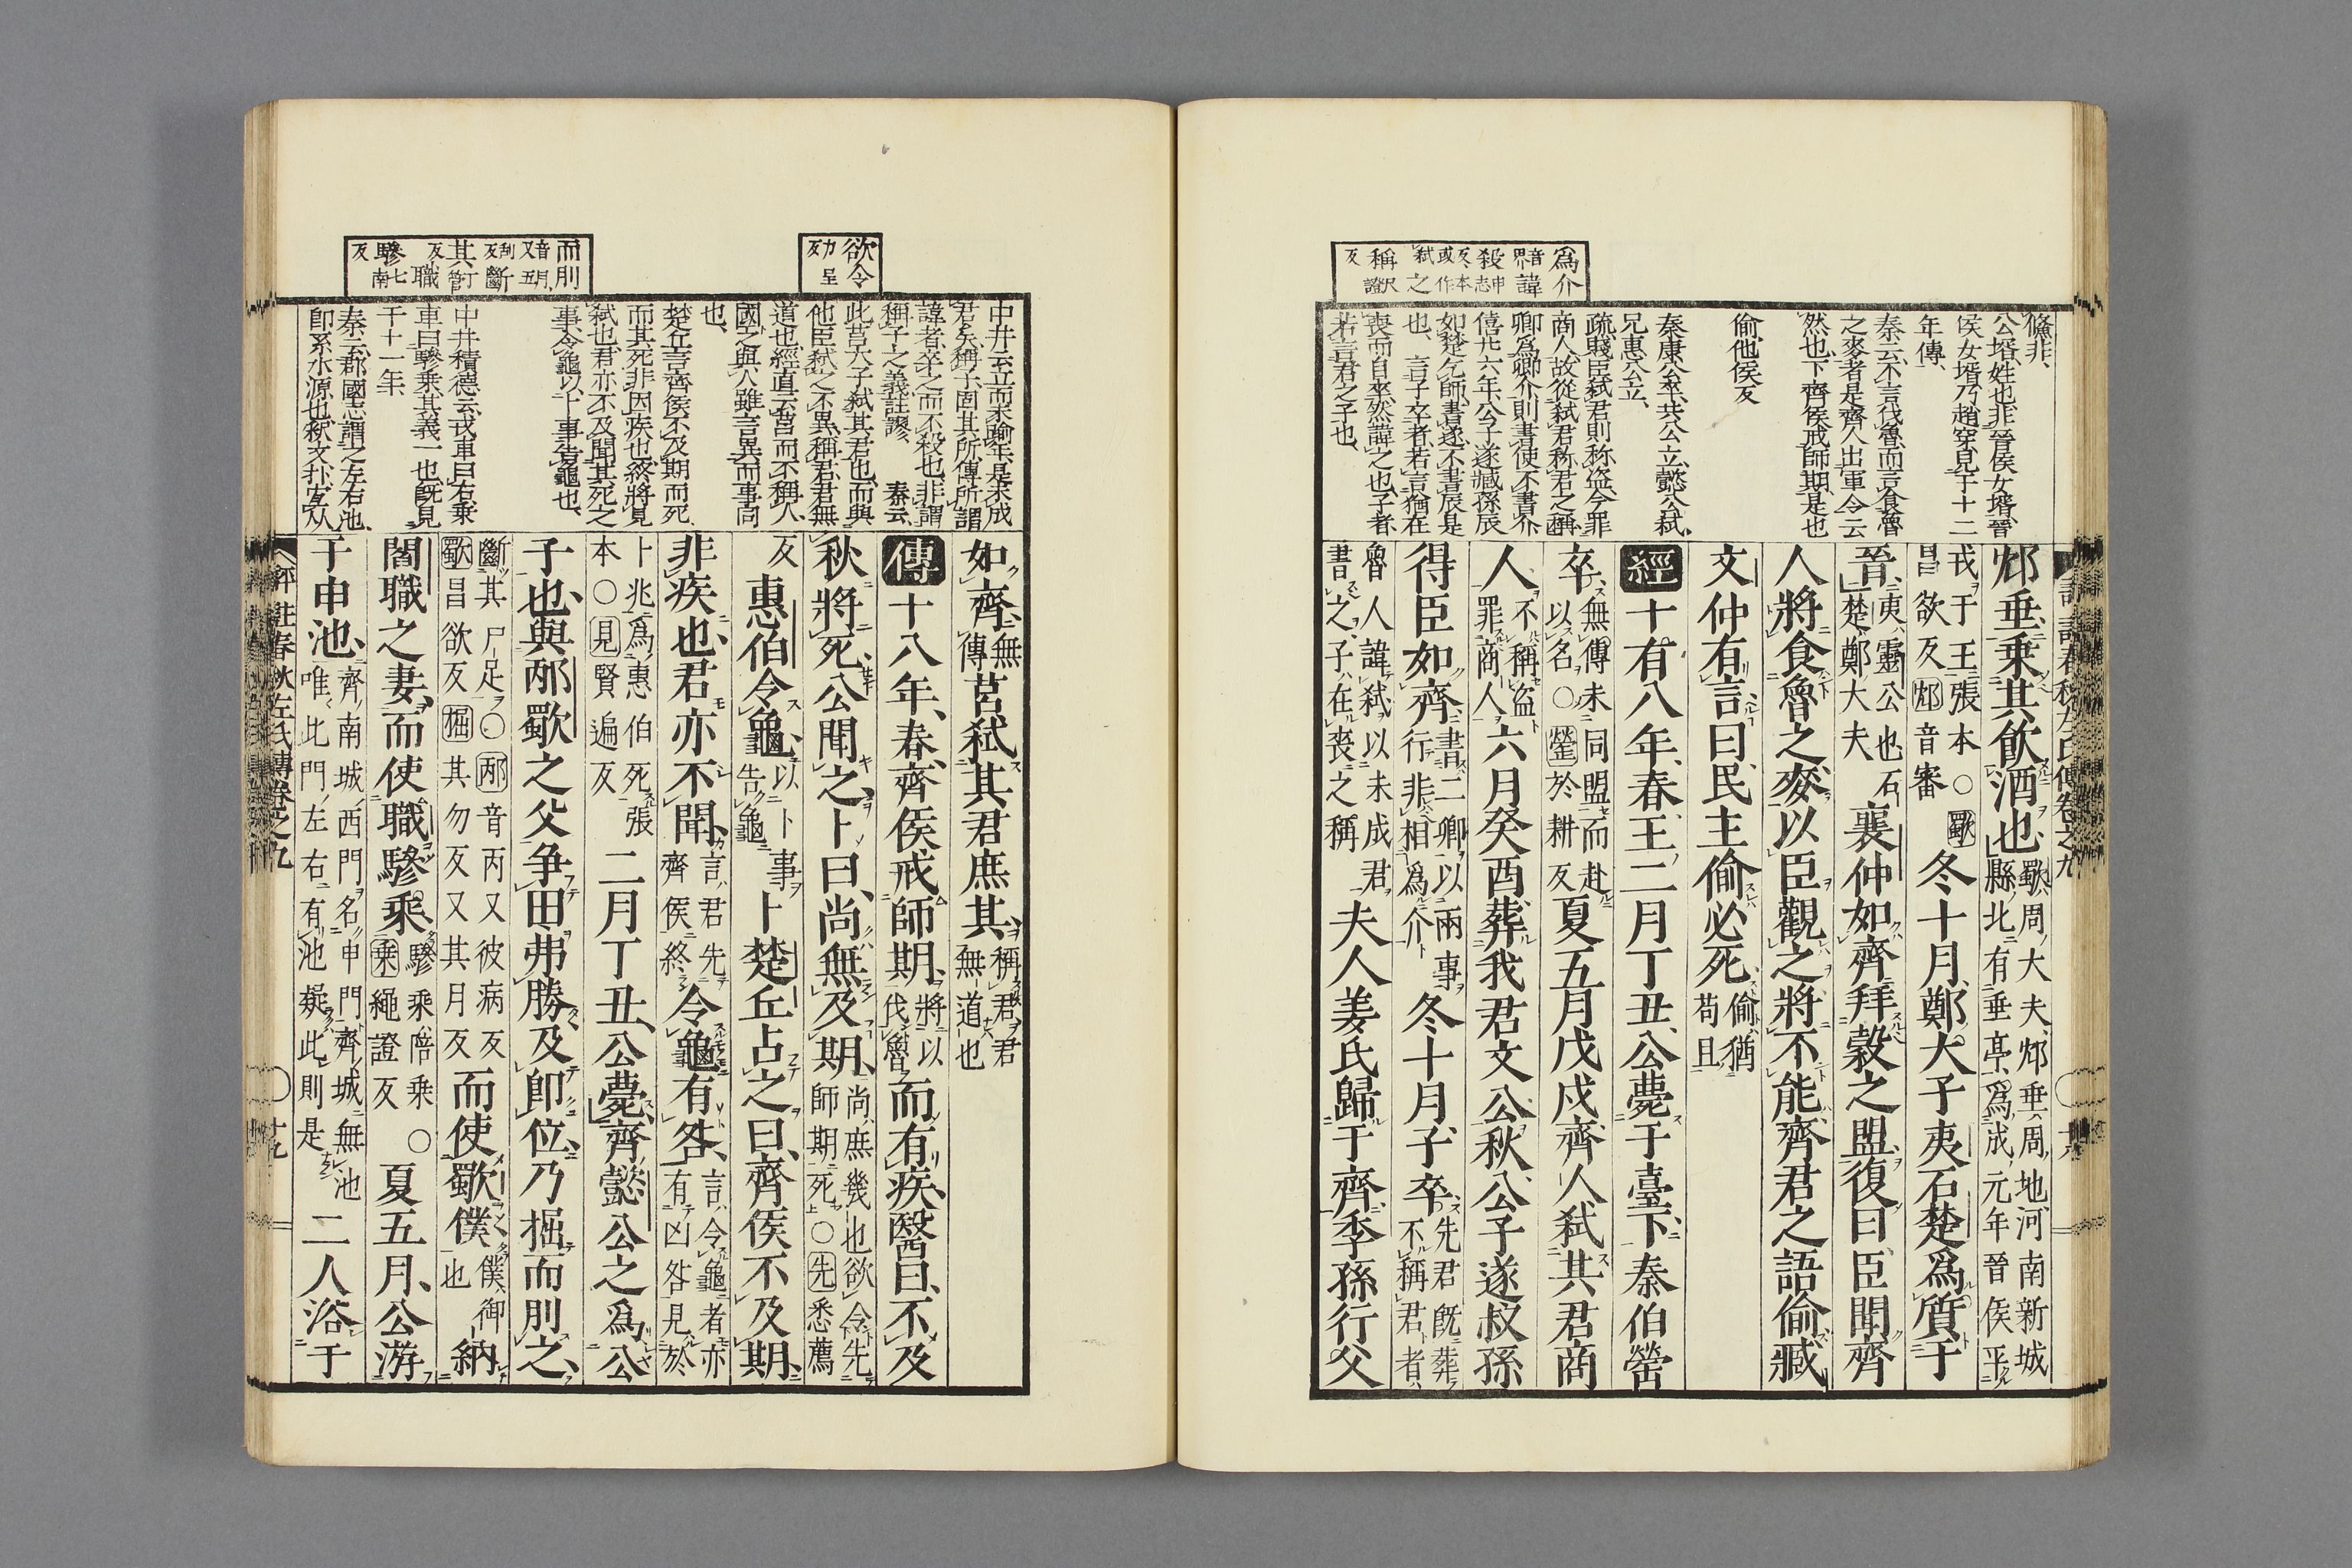 爲介
音諱
弒申志
反本或作
弒之
稱尺證
反
鯈非、
公壻、姓也、非晉侯女壻、晉
侯女壻乃趙穿、見于十二
年傳、
秦云、不言伐魯、而言食魯
之麥者、是齊人出軍令云
然也、下齊侯戒師期、是也
偷、他侯反
秦康公卒、共公立、懿公弒、
兄惠公立、
疏、賤臣弒君、則称盜、今罪
商人、故從弒君称君之例、
卿爲卿介、則書使、不書介、
僖廿六年、公子遂臧孫辰
如楚乞師、書遂、不書辰、是
也、言子卒者、若言猶在
喪而自卒、然諱之也、子者、
若言君之子也、
邥垂、乘其飲酒也、歜、周大夫、邥垂、周地、河南新城
縣北有垂亭、爲成元年晉侯平
戎于王張本○歜
昌欲反邥音審 冬十月、鄭大子夷石楚爲質于
晉、夷、靈公也、石
楚、鄭大夫 襄仲如齊、拜穀之盟、復曰、臣聞齊
人將食魯之麥、以臣觀之、將不能、齊君之語偷、臧
文仲有言曰、民主偷必死、偷、猶
苟且
經十有八年、春、王二月丁丑、公薨于臺下、秦伯罃
卒、無傳、未同盟、而赴
以名○罃於耕反 夏五月戊戌、齊人弒其君商
人、不稱盜、
罪商人 六月癸酉、葬我君文公、秋、公子遂叔孫
得臣如齊、書二卿、以兩事
行、非相爲介 冬十月、子卒、先君既葬、
不稱君者、
魯人諱弒、以未成君
書之、子、在喪之稱 夫人姜氏歸于齊、季孫行父
欲令
力呈
反
而刖
音月、
又五
刮反
斷
其丁管
反
職
驂七南
反
中井云、立而未踰年、是未成
君矣、稱子固其所、傳所謂
諱者、卒之而不殺也、非謂
稱子之義、註謬、 秦云、
此莒大子弒其君也、而與
他臣弒之不異、稱君、君無
道也、經直云莒而不稱人、
國之與人雖言異、而事同
也、
楚丘言齊侯不及期而死
而其死非因疾也、終將見
弒也、君亦不及聞其死之
事、令龜、以卜事告龜也、
中井積德云、戎車曰右、乘
車曰驂乘、其義一也、既見
于十一年、
秦云、郡國志謂之左右池、
卽系水源也、釈文、扑、字从
如齊、無
傳 莒弒其君庶其、稱君、君
無道也
傳十八年、春、齊侯戒師期、將以
伐魯 而有疾、醫曰、不及
秋將死、公聞之、卜曰、尚無及期、尚、庶幾也、欲令先
師期死○先悉薦
反 惠伯令龜、以卜事
告龜 卜楚丘占之曰、齊侯不及期、
非疾也、君亦不聞、言君先
齊侯終 令龜有咎、言令龜者、亦
有凶咎、見於
卜兆、爲惠伯死張
本○見賢遍反 二月丁丑、公薨、齊懿公之爲公
子也、與邴歜之父爭田、弗勝、及卽位、乃掘而刖之、
斷其尸足○邴音丙又彼病反
歜昌欲反掘其勿反又其月反 而使歜僕、僕、御
也 納
閻職之妻、而使職驂乘、驂乘、陪乘○
乘繩證反 夏五月、公游
于申池、齊南城西門名申門、齊城無池
唯此門左右有池、疑此則是 二人浴于
評註春秋左氏傳卷之九